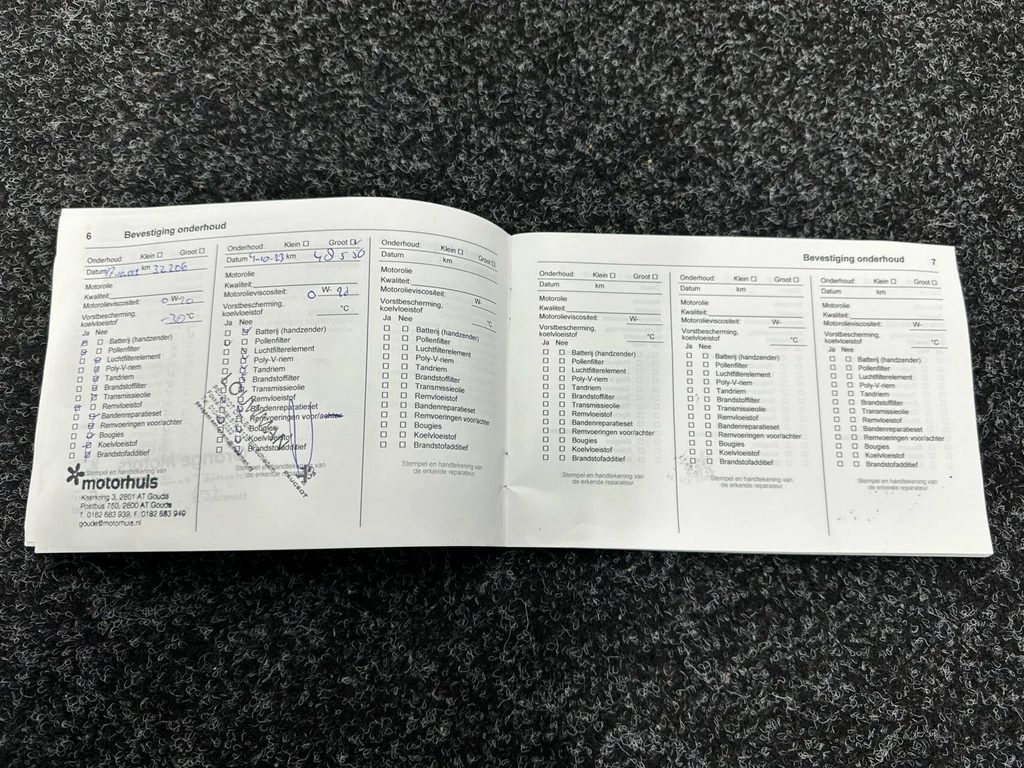 6 Bevestiging onderhoud
Onderhoud: Klein Groot
Datum km 32206
Motorolie
Kwaliteit:
Motorolieviscositeit: 0 W- 20
Vorstbescherming,
koelvloeistof -30 °C
Ja Nee
Batterij (handzender)
Pollenfilter
Luchtfilterelement
Poly-V-riem
Tandriem
Brandstoffilter
Transmissieolie
Remvloeistof
Bandenreparatieset
Remvoeringen voor/achter
Bougies
Koelvloeistof
Brandstofadditief
Stempel en handtekening van
motorhuis
Keerkring 3, 2801 AT Gouda
Postbus 750, 2800 AT Gouda
T. 0182 683 939, F. 0182 683 940
gouda@motorhuis.nl
Onderhoud: Klein Groot
Datum 4-10-23 km 48550
Motorolie
Kwaliteit:
Motorolieviscositeit: 0 W- 20
Vorstbescherming,
koelvloeistof °C
Ja Nee
Batterij (handzender)
Pollenfilter
Luchtfilterelement
Poly-V-riem
Tandriem
Brandstoffilter
Transmissieolie
Remvloeistof
Bandenreparatieset
Remvoeringen voor/achter
Bougies
Koelvloeistof
Brandstofadditief
Stempel en handtekening van
de erkende reparateur
PEUGEOT
Onderhoud: Klein Groot
Datum km
Motorolie
Kwaliteit:
Motorolieviscositeit: W-
Vorstbescherming,
koelvloeistof °C
Ja Nee
Batterij (handzender)
Pollenfilter
Luchtfilterelement
Poly-V-riem
Tandriem
Brandstoffilter
Transmissieolie
Remvloeistof
Bandenreparatieset
Remvoeringen voor/achter
Bougies
Koelvloeistof
Brandstofadditief
Stempel en handtekening van
de erkende reparateur
Bevestiging onderhoud 7
Onderhoud: Klein Groot
Datum km
Motorolie
Kwaliteit:
Motorolieviscositeit: W-
Vorstbescherming,
koelvloeistof °C
Ja Nee
Batterij (handzender)
Pollenfilter
Luchtfilterelement
Poly-V-riem
Tandriem
Brandstoffilter
Transmissieolie
Remvloeistof
Bandenreparatieset
Remvoeringen voor/achter
Bougies
Koelvloeistof
Brandstofadditief
Stempel en handtekening van
de erkende reparateur
Onderhoud: Klein Groot
Datum km
Motorolie
Kwaliteit:
Motorolieviscositeit: W-
Vorstbescherming,
koelvloeistof °C
Ja Nee
Batterij (handzender)
Pollenfilter
Luchtfilterelement
Poly-V-riem
Tandriem
Brandstoffilter
Transmissieolie
Remvloeistof
Bandenreparatieset
Remvoeringen voor/achter
Bougies
Koelvloeistof
Brandstofadditief
Stempel en handtekening van
de erkende reparateur
Onderhoud: Klein Groot
Datum km
Motorolie
Kwaliteit:
Motorolieviscositeit: W-
Vorstbescherming,
koelvloeistof °C
Ja Nee
Batterij (handzender)
Pollenfilter
Luchtfilterelement
Poly-V-riem
Tandriem
Brandstoffilter
Transmissieolie
Remvloeistof
Bandenreparatieset
Remvoeringen voor/achter
Bougies
Koelvloeistof
Brandstofadditief
Stempel en handtekening van
de erkende reparateur